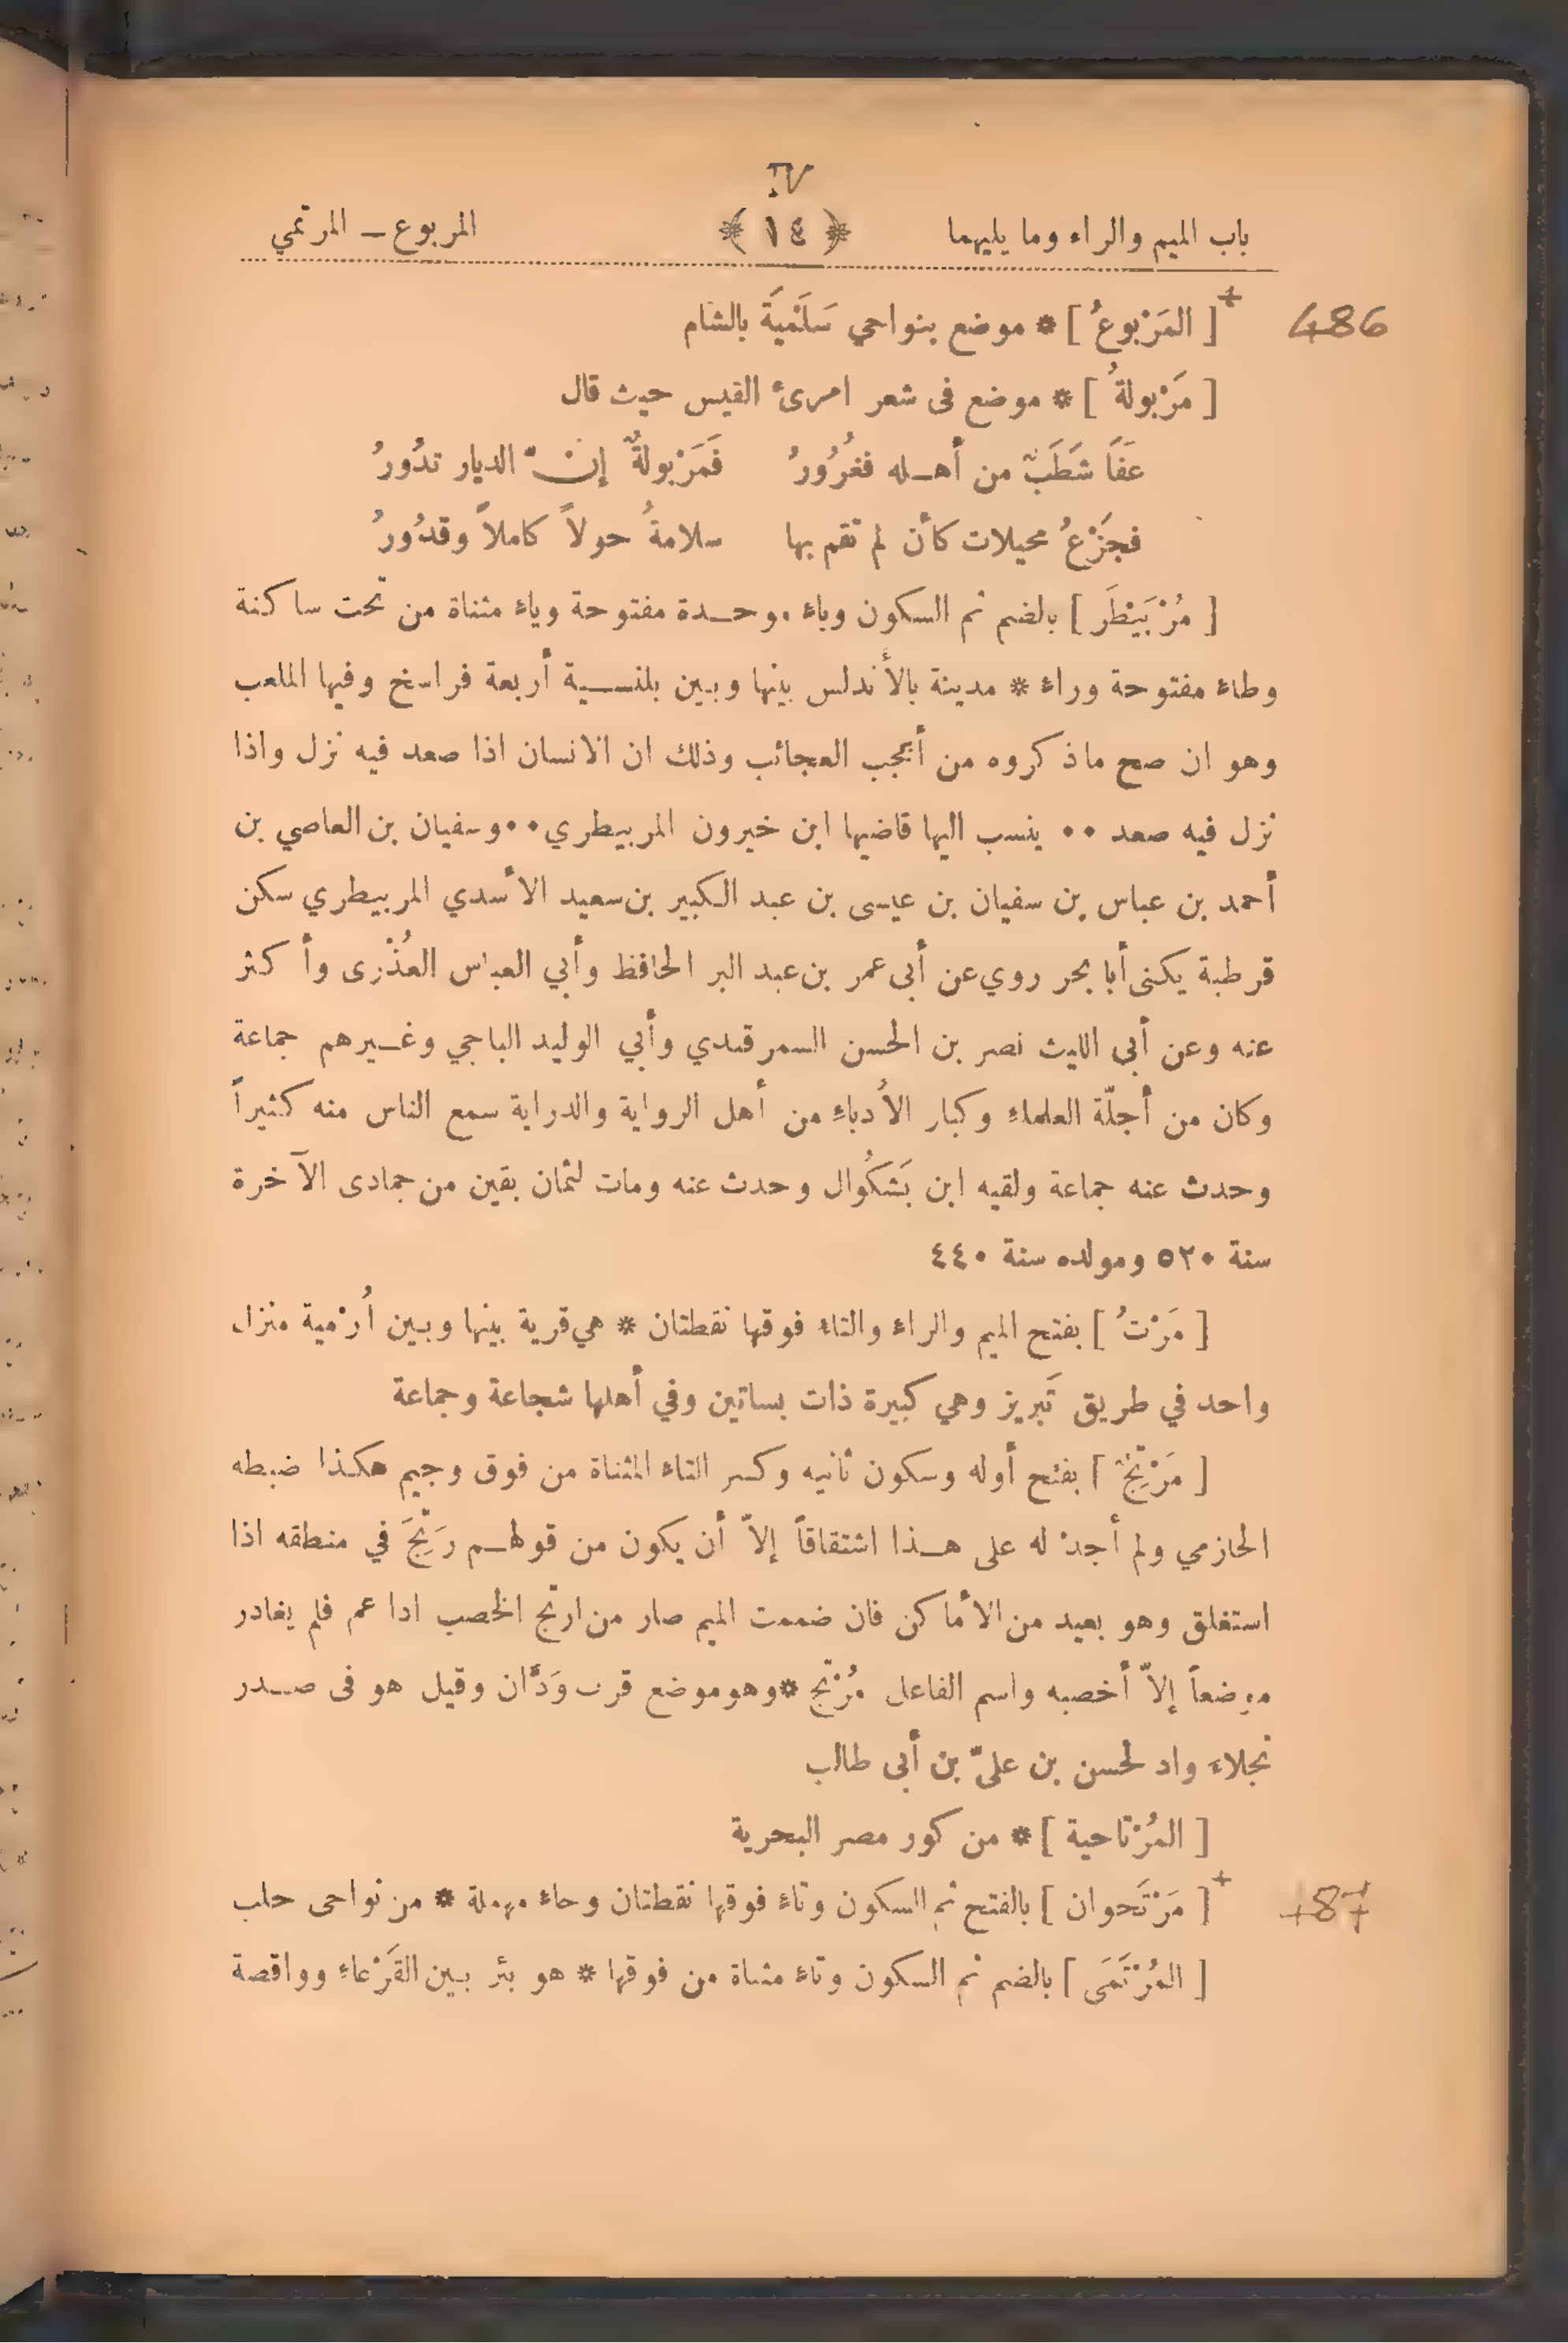 IV
باب الميم والراء وما يليهما ﴿ ١٤ ﴾ المربوع ــ المرتمي
486 + [ المَرْبوعُ ] * موضع بنواحي سَلَمْيَةَ بالشام
[ مَرْبولةُ ] * موضع فى شعر امرئ القيس حيث قال
عَفَا شَطَبٌ من أهـله فغُرُورُ فَمَرْبولةٌ إنّ الديار تدُورُ
فجَزْعُ محيلات كأن لم تقم بها سلامةُ حولاً كاملاً وقدُورُ
[ مُرْبَيْطَر ] بالضم ثم السكون وباء موحـدة مفتوحة وياء مثناة من تحت ساكنة
وطاء مفتوحة وراء * مدينة بالأندلس بينها وبين بلنسـية أربعة فراسخ وفيها الملعب
وهو ان صح ماذكروه من أعجب العجائب وذلك ان الانسان اذا صعد فيه نزل واذا
نزل فيه صعد ٠٠ ينسب اليها قاضيها ابن خيرون المربيطري ٠٠ وسفيان بن العاصي بن
أحمد بن عباس بن سفيان بن عيسى بن عبد الكبير بن سعيد الأسدي المربيطري سكن
قرطبة يكنى أبا بحر روي عن أبى عمر بن عبد البر الحافظ وأبي العباس العُذْرى وأكثر
عنه وعن أبى الليث نصر بن الحسن السمرقندي وأبي الوليد الباجي وغـيرهم جماعة
وكان من أجلّة العلماء وكبار الأدباء من أهل الرواية والدراية سمع الناس منه كثيراً
وحدث عنه جماعة ولقيه ابن بَشكُوال وحدث عنه ومات لثمان بقين من جمادى الآخرة
سنة ٥٢٠ ومولده سنة ٤٤٠
[ مَرْتُ ] بفتح الميم والراء والتاء فوقها نقطتان * هي قرية بينها وبين أُرْمية منزل
واحد في طريق تَبريز وهي كبيرة ذات بساتين وفي أهلها شجاعة وجماعة
[ مَرْتِجٌ ] بفتح أوله وسكون ثانيه وكسر التاء المثناة من فوق وجيم هكذا ضبطه
الحازمي ولم أجدْ له على هـذا اشتقاقاً إلاّ أن يكون من قولهـم رَتِجَ في منطقه اذا
استغلق وهو بعيد من الأماكن فان ضممت الميم صار من ارتج الخصب اذا عم فلم يغادر
موضعاً إلاّ أخصبه واسم الفاعل مُرْتج * وهو موضع قرب وَدَّان وقيل هو فى صـدر
نجلاء واد لحسن بن علىّ بن أبى طالب
[ المُرْتاحية ] * من كور مصر البحرية
487 + [ مَرْتَحوان ] بالفتح ثم السكون وتاء فوقها نقطتان وحاء مهملة * من نواحى حلب
[ المُرْتَمَى ] بالضم ثم السكون وتاء مثناة من فوقها * هو بئر بـين القَرْعاء وواقصة